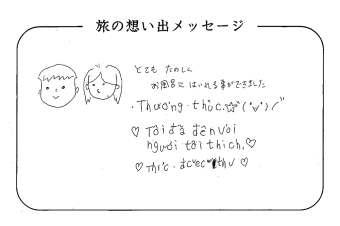 旅の想い出メッセージ
とても たのしく
お風呂に はいれる事ができました
・Thương・thức.☆彡(°∀°)ノ"
♡ Tôi đã đến với
người tôi thích.♡